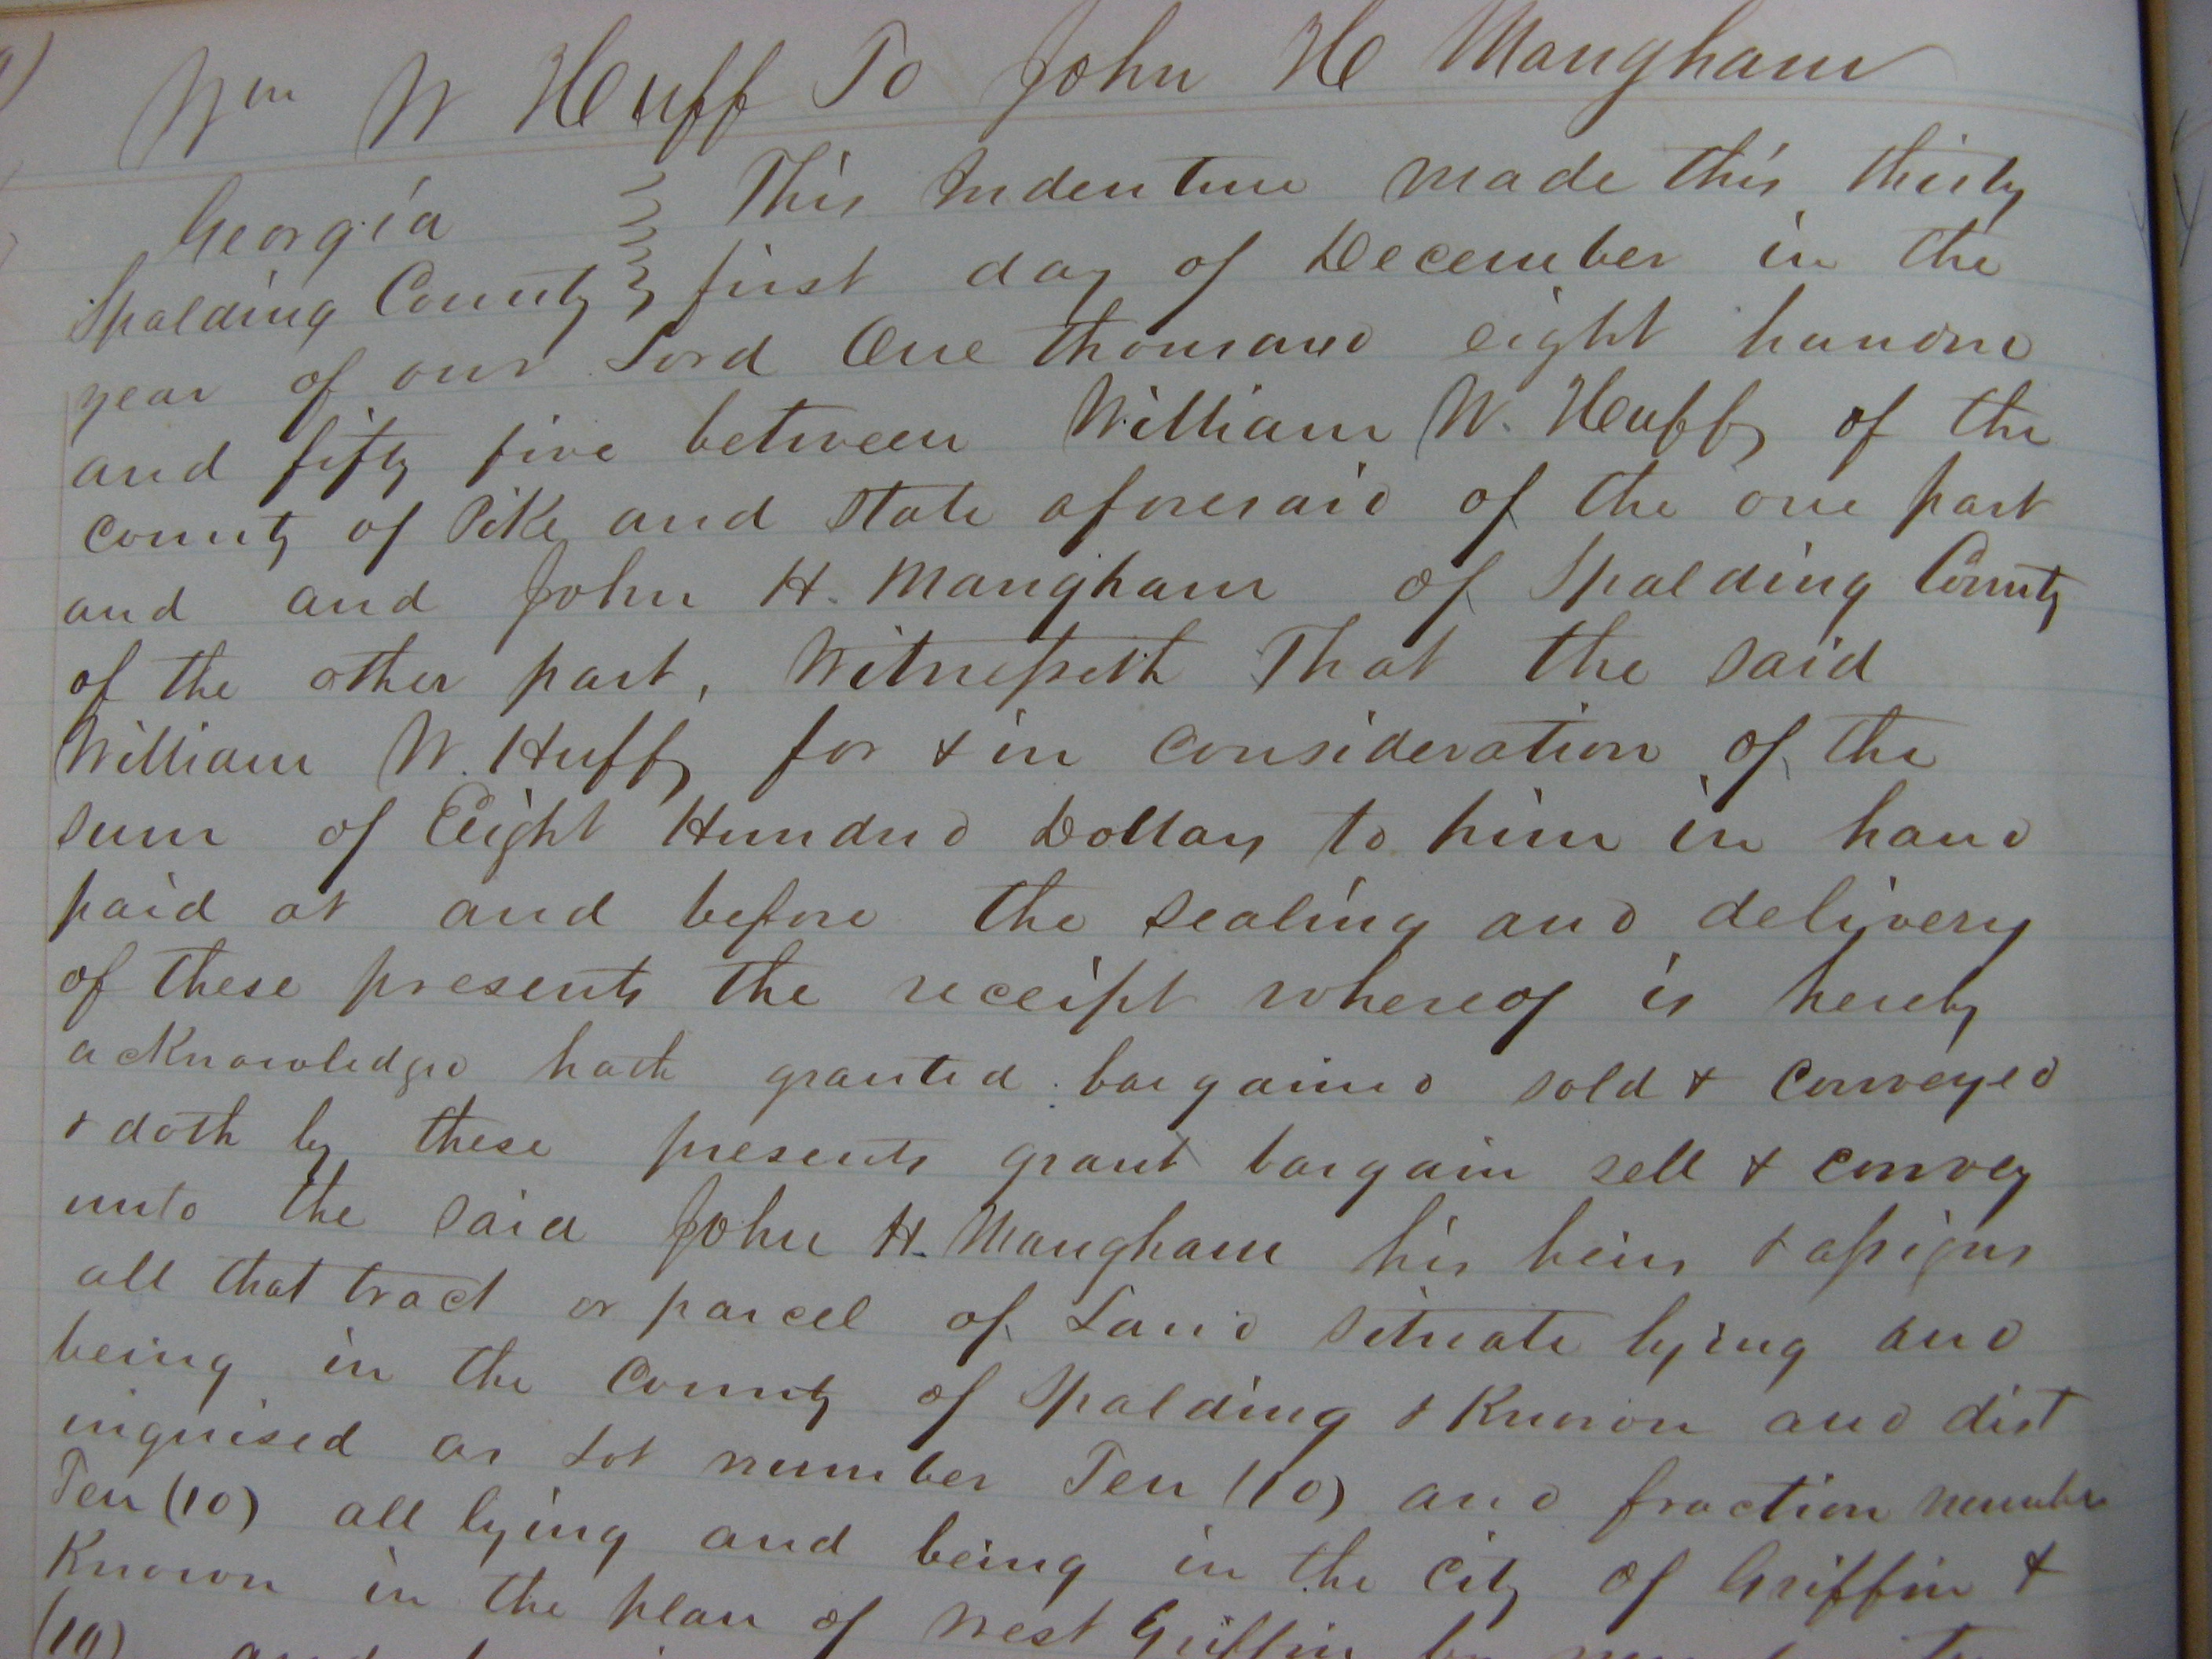 Wm W Huff To John H Mangham
Georgia } This Indenture made this thirty
Spalding County } first day of December in the
year of our Lord One thousand eight hundred
and fifty five between William W. Huff of the
county of Pike and State aforesaid of the one part
and and John H. Mangham of Spalding County
of the other part, Witnesseth That the said
William W. Huff for & in consideration of the
sum of Eight Hundred Dollars to him in hand
paid at and before the sealing and delivery
of these presents the receipt whereof is hereby
acknowledged hath granted bargained sold & conveyed
& doth by these presents grant bargain sell & convey
unto the said John H. Mangham his heirs & assigns
all that tract or parcel of Land situate lying and
being in the County of Spalding & known and dist
inguised as Lot number Ten (10) and fraction number
Ten (10) all lying and being in the City of Griffin &
Known in the plan of West Griffin by